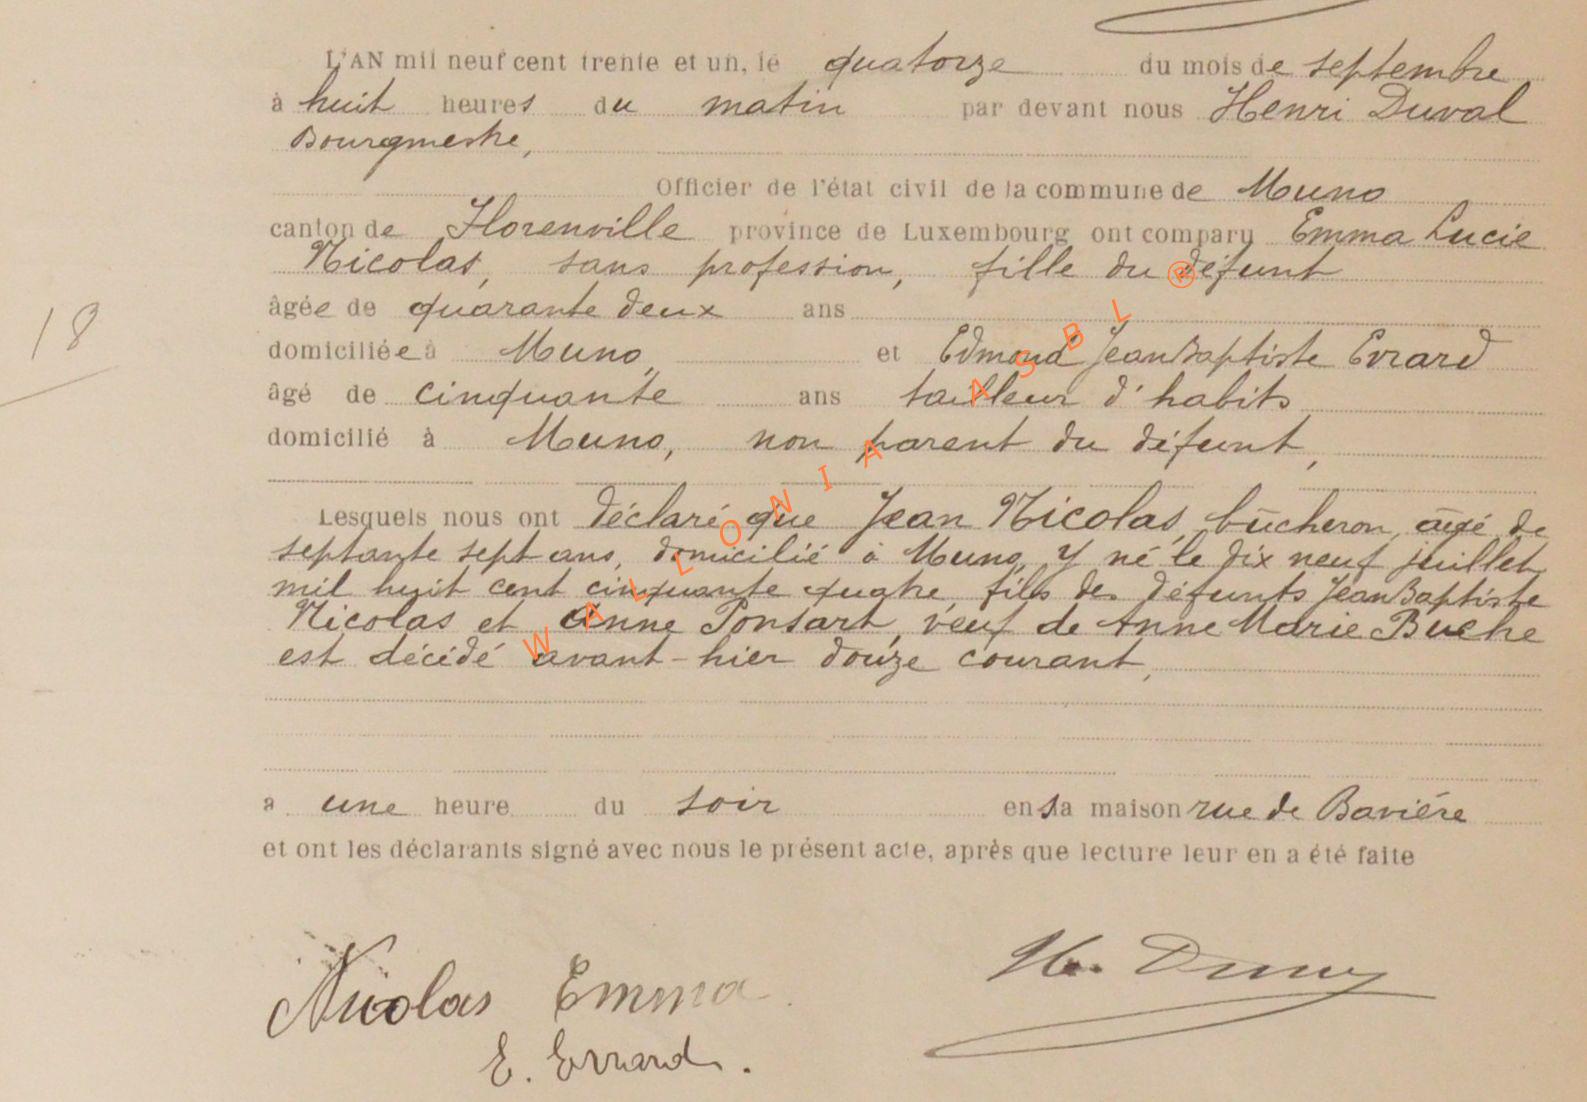 L'AN mil neuf cent trente et un, le quatorze du mois de septembre
à huit heures du matin par devant nous Henri Duval
Bourgmestre,
Officier de l'état civil de la commune de Muno
canton de Florenville province de Luxembourg ont comparu Emma Lucie
Nicolas, sans profession, fille du défunt
âgée de quarante deux ans
18
domiciliée à Muno, et Edmond Jean Baptiste Evrard
âgé de cinquante ans tailleur d'habits
domicilié à Muno, non parent du défunt,
Lesquels nous ont déclaré que Jean Nicolas, bûcheron, âgé de
septante sept ans, domicilié à Muno, y né le dix neuf juillet
mil huit cent cinquante quatre, fils des défunts Jean Baptiste
Nicolas et Anne Ponsart, veuf de Anne Marie Buche
est décédé avant-hier douze courant,
a une heure du soir en sa maison rue de Bavière
et ont les déclarants signé avec nous le présent acte, après que lecture leur en a été faite
Nicolas Emma
H. Duval
E. Evrard.
WALLONIA ASBL ®